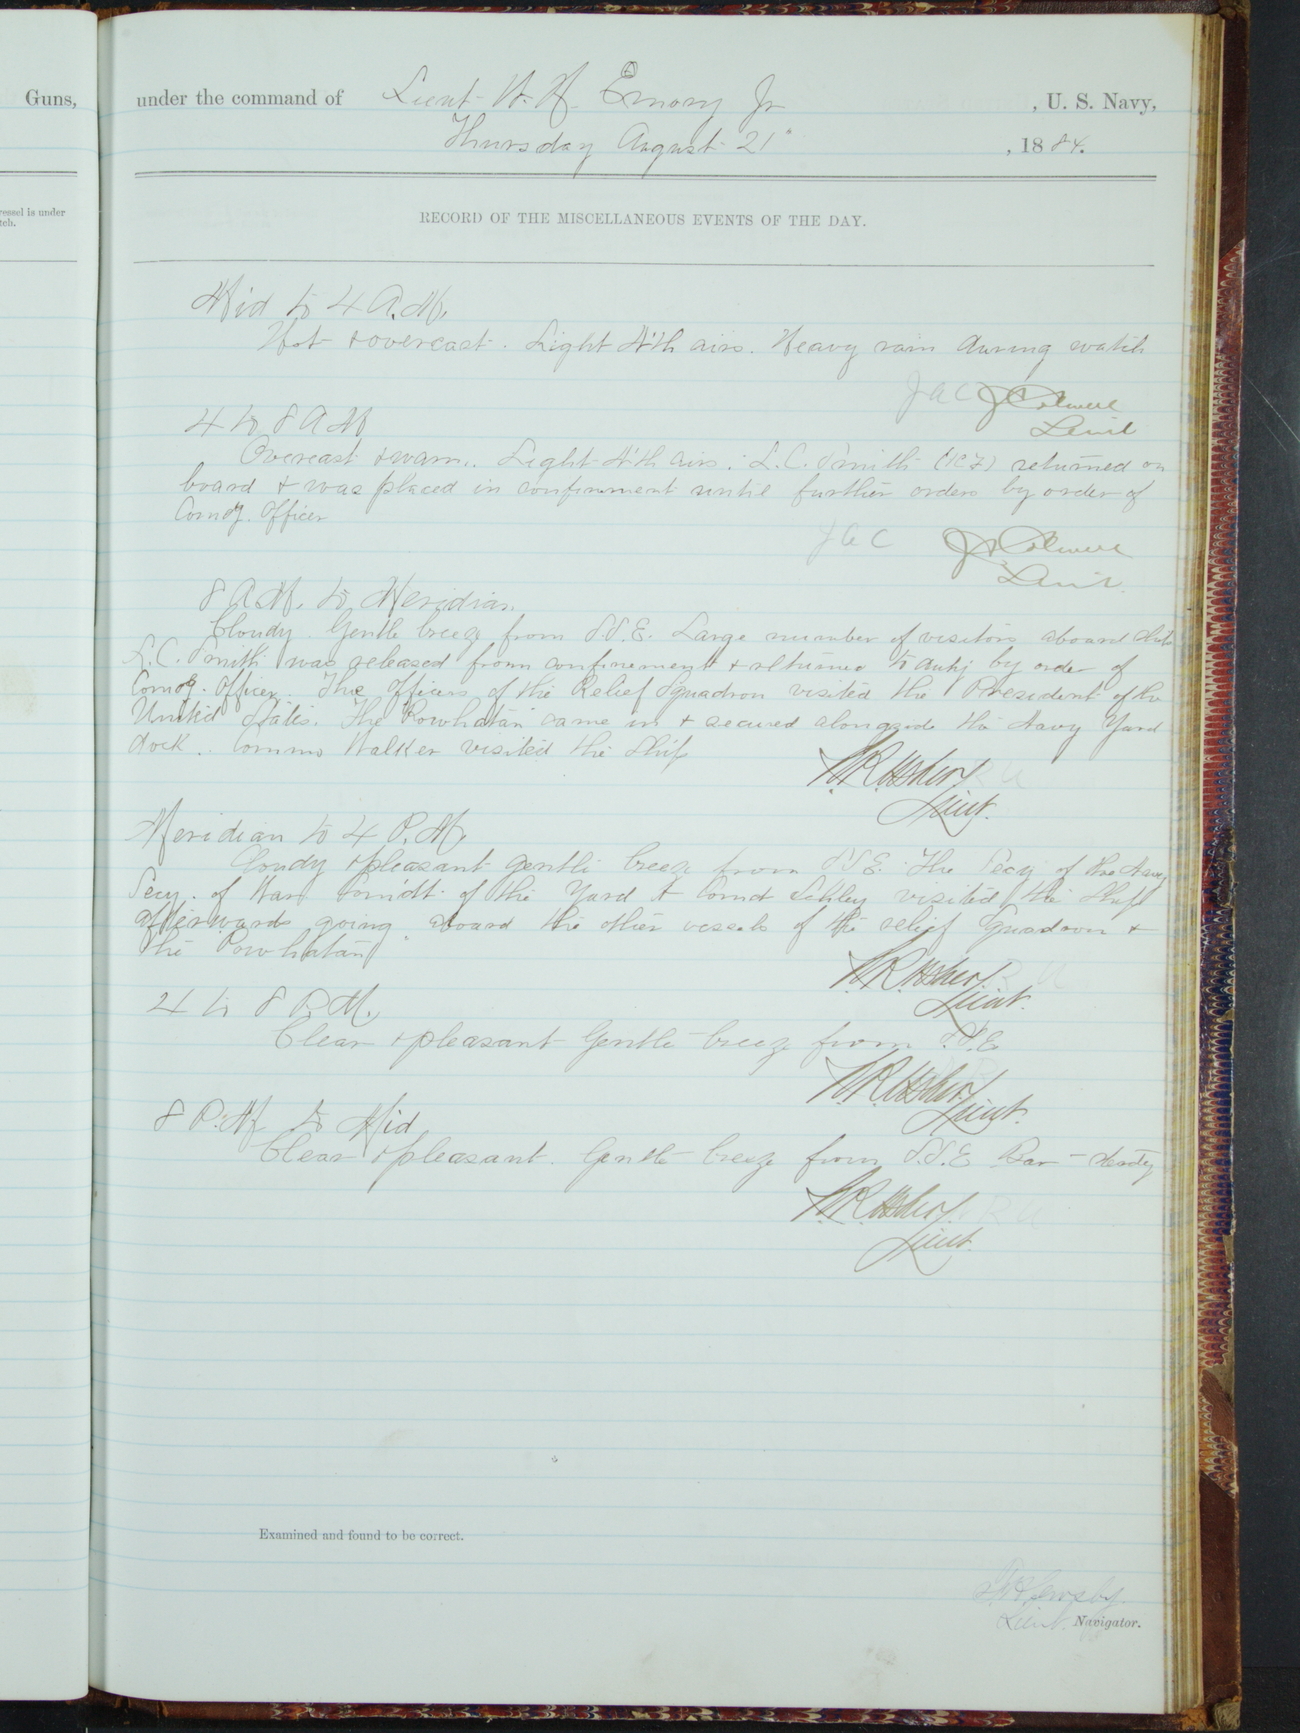 Guns,
under the command of Lieut. W. H. Emory Jr , U. S. Navy,
Thursday August 21" , 1884.
vessel is under
tch.
RECORD OF THE MISCELLANEOUS EVENTS OF THE DAY.
Mid to 4 A.M.
Hot & overcast. Light N'th airs. Heavy rain during watch
J A C J C Colwell
Lieut
4 to 8 A M
Overcast & warm. Light N'th airs. L. C. Smith returned on
board & was placed in confinement until further orders by order of
Comdg. Officer
J C C J C Colwell
Lieut.
8 A.M. to Meridian.
Cloudy. Gentle breeze from S.S.E. Large number of visitors aboard ship
L.C. Smith was released from confinement & returned to duty by order of
Comdg. Officer. The Officers of the Relief Squadron visited the President of the
United States. The Powhatan came in & secured alongside the Navy Yard
dock. Commo Walker visited the Ship
N. R. Usher
Lieut.
Meridian to 4 P.M.
Cloudy & pleasant gentle breeze from S.S.E. The Secy of the Navy
Secy. of War Comdt of the Yard & Comd Schley visited the Ship
afterwards going aboard the other vessels of the relief Squadron &
the Powhatan
N. R. Usher.
Lieut.
4 to 8 P.M.
Clear & pleasant Gentle breeze from S.S.E
N. R. Usher
Lieut.
8 P.M to Mid
Clear & pleasant. Gentle breeze from S.S.E Bar - steady
N. R. Usher.
Lieut.
Examined and found to be correct.
Lieut. Navigator.